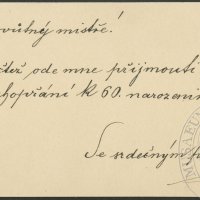 ovůtný mistře!
čtež ode mne přijmouti
hopřání k 60. narozenin
Se srdečným p